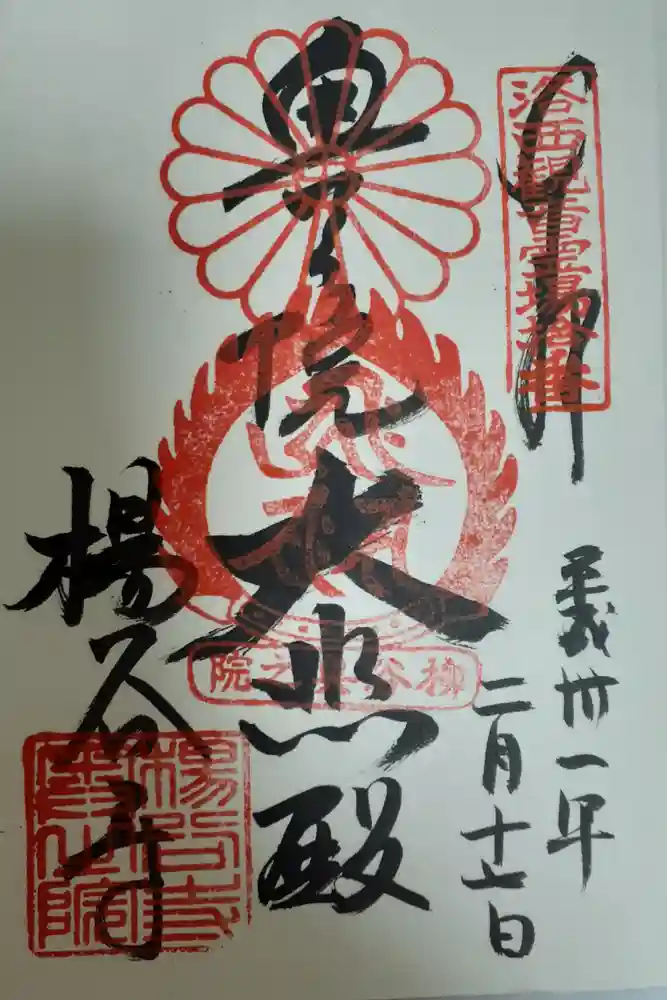 奉拝
洛西觀音霊場拾番
平成卅一年
二月十七日
奥之院
大悲殿
柳谷奥之院
楊谷寺
楊谷寺